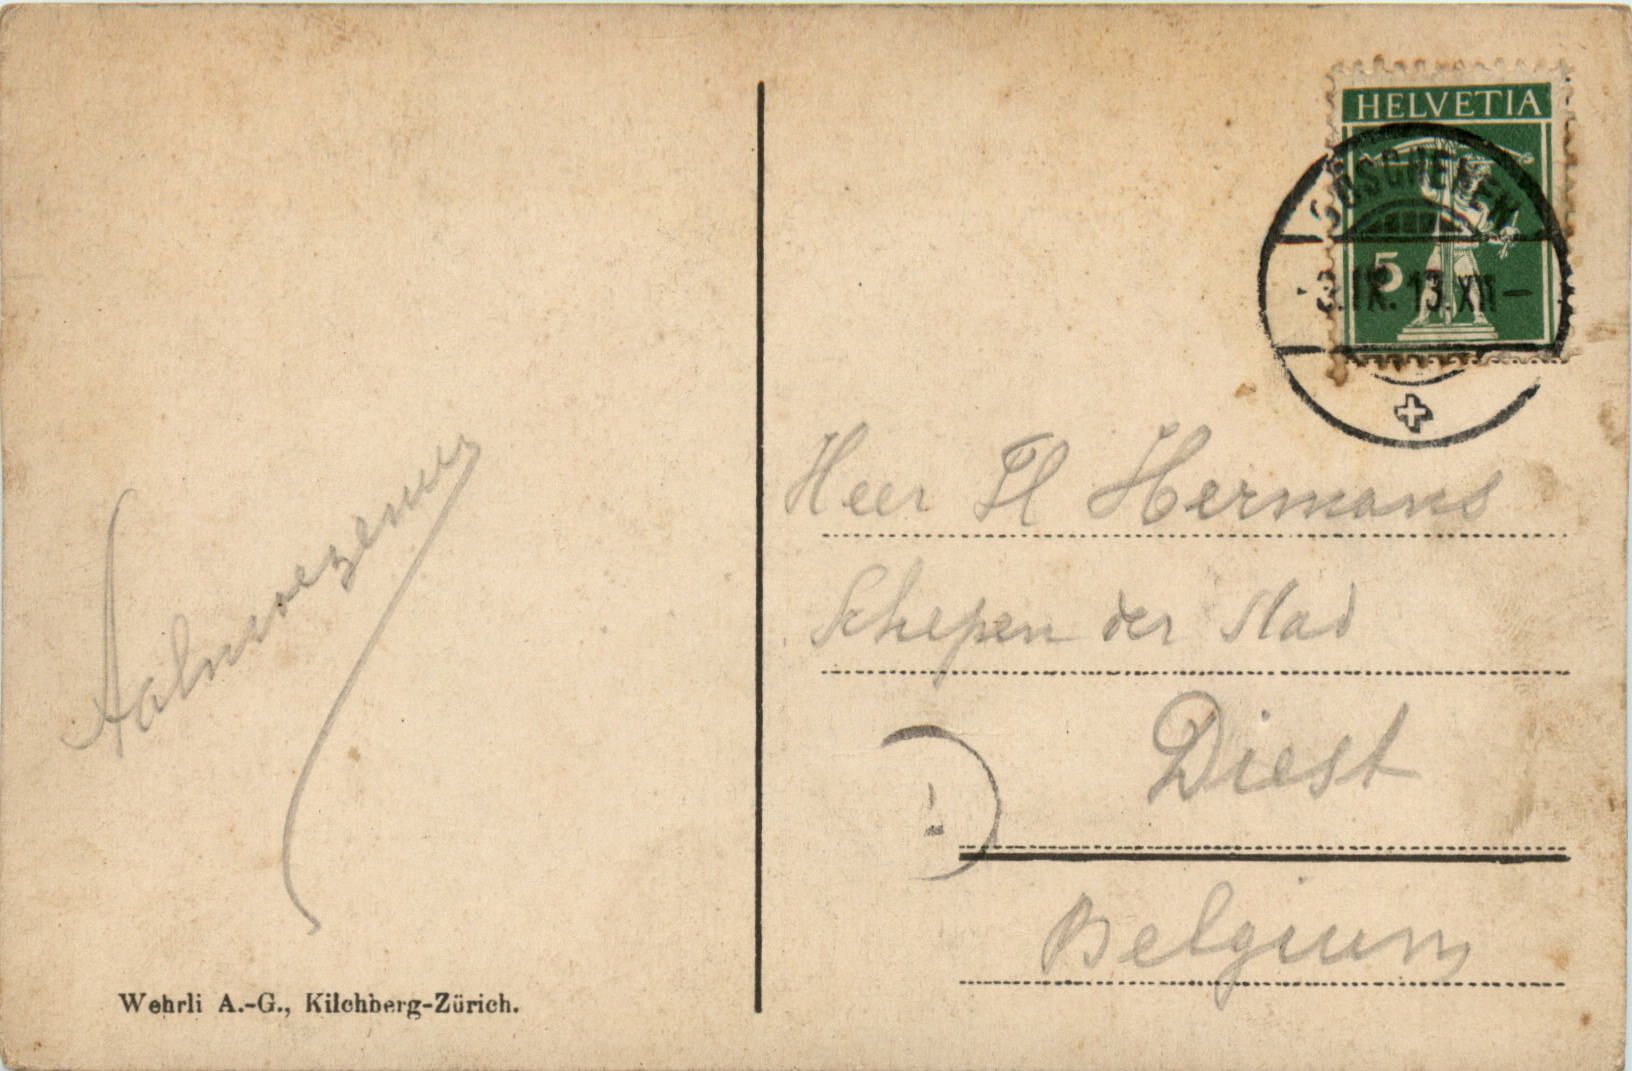 HELVETIA
GÖSCHENEN
5
IX. 13. XII –
Heer Fl Hermans
Schepen der stad
Diest
Belgium
Aalmoezenier
Wehrli A.-G., Kilchberg-Zürich.